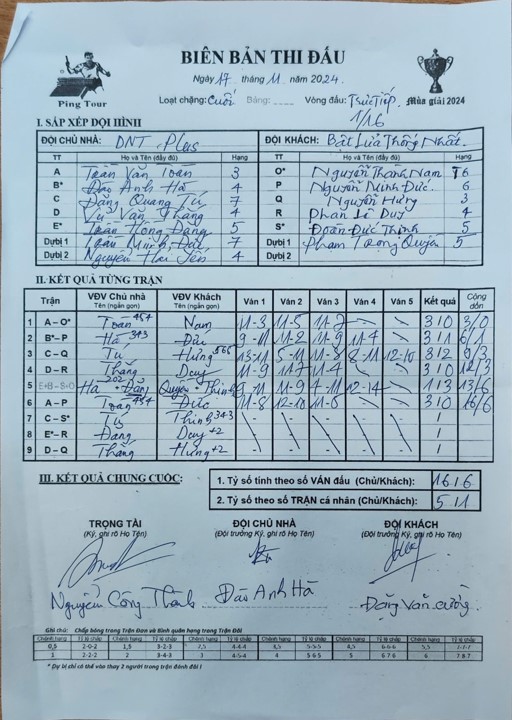 BIÊN BẢN THI ĐẤU
Ngày 17 tháng 11 năm 2024.
Ping Tour
Loại chặng: Cuối Bảng: Vòng đấu: Trực Tiếp Mùa giải 2024
1/16
I. SẮP XẾP ĐỘI HÌNH
ĐỘI CHỦ NHÀ: DNT Plus ĐỘI KHÁCH: Bật Lửa Thống Nhất.
TT Họ và Tên (đầy đủ) Hạng TT Họ và Tên (đầy đủ) Hạng
A Toàn Văn Toàn 3 O* Nguyễn Thành Nam 6
B* Đào Anh Hà 4 P Nguyễn Minh Đức 6
C Đặng Quang Tú 7 Q Nguyễn Hưng 3
D Vũ Văn Thắng 4 R Phan Lê Duy 4
E* Trần Hồng Đăng 5 S* Đoàn Đức Thịnh 5
Dự bị 1 Trần Minh Đức 7 Dự bị 1 Phạm Trọng Quyền 5
Dự bị 2 Nguyễn Hải Yến 4 Dự bị 2
II. KẾT QUẢ TỪNG TRẬN
Trận VĐV Chủ nhà (Tên ngắn gọn) VĐV Khách (Tên ngắn gọn) Ván 1 Ván 2 Ván 3 Ván 4 Ván 5 Kết quả Cộng dồn
1 A – O* Toàn 454 Nam 11-3 11-5 11-2 \ \ 3 / 0 3/0
2 B* – P Hà 343 Đức 9-11 11-2 11-9 11-4 \ 3 / 1 6/1
3 C – Q Tú Hưng 565 13-11 5-11 11-8 8-11 12-10 3 / 2 9/3
4 D – R Thắng Duy 11-9 11-7 11-4 \ \ 3 / 0 12/3
5 E+B – S+O Hà 202 + Đăng Quyền + Thịnh 9-11 11-9 4-11 12-14 \ 1 / 3 13/6
6 A – P Toàn 454 Đức 11-8 12-10 11-6 \ \ 3 / 0 16/6
7 C – S* Tú Thịnh 343 \ \ \ \ \ /
8 E* – R Đăng Duy +2 \ \ \ \ \ /
9 D – Q Thắng Hưng +2 \ \ \ \ \ /
III. KẾT QUẢ CHUNG CUỘC:
1. Tỷ số tính theo số VÁN đấu (Chủ/Khách): 16 / 6
2. Tỷ số theo số TRẬN cá nhân (Chủ/Khách): 5 / 1
TRỌNG TÀI ĐỘI CHỦ NHÀ ĐỘI KHÁCH
(Ký, ghi rõ Họ Tên) (Đội trưởng Ký, ghi rõ Họ Tên) (Đội trưởng Ký, ghi rõ Họ Tên)
Nguyễn Công Thành Đào Anh Hà Đặng Văn Cường
Ghi chú: Chấp bóng trong Trận Đơn và Bình quân hạng trong Trận Đôi
Chênh hạng Tỷ lệ chấp Chênh hạng Tỷ lệ chấp Chênh hạng Tỷ lệ chấp Chênh hạng Tỷ lệ chấp Chênh hạng Tỷ lệ chấp Chênh hạng Tỷ lệ chấp
0,5 2-0-2 1,5 3-2-3 2,5 4-4-4 3,5 5-5-5 4,5 6-6-6 5,5 7-7-7
1 2-2-2 2 3-4-3 3 4-5-4 4 5-6-5 5 6-7-6 6 7-8-7
* Dự bị chỉ có thể vào thay 2 người trong trận đánh đôi !